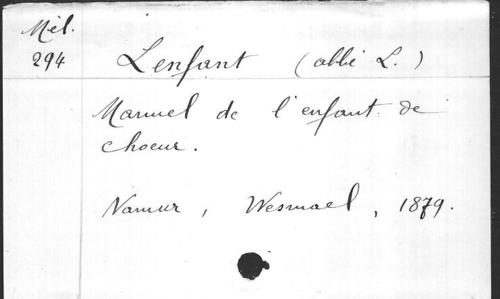 Mél.
294
Lenfant (abbé L.)
Manuel de l'enfant de
choeur.
Namur, Wesmael, 1879.